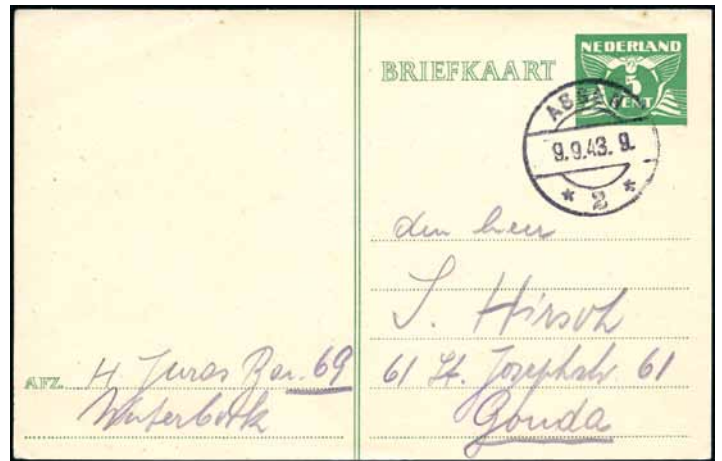 BRIEFKAART
NEDERLAND
5
CENT
ASSEN
9.9.43. 9.
* 2 *
den heer
S. Hirsch
61 St. Josephstr. 61
Gouda
AFZ. H. Juras Bar. 69
Westerbork